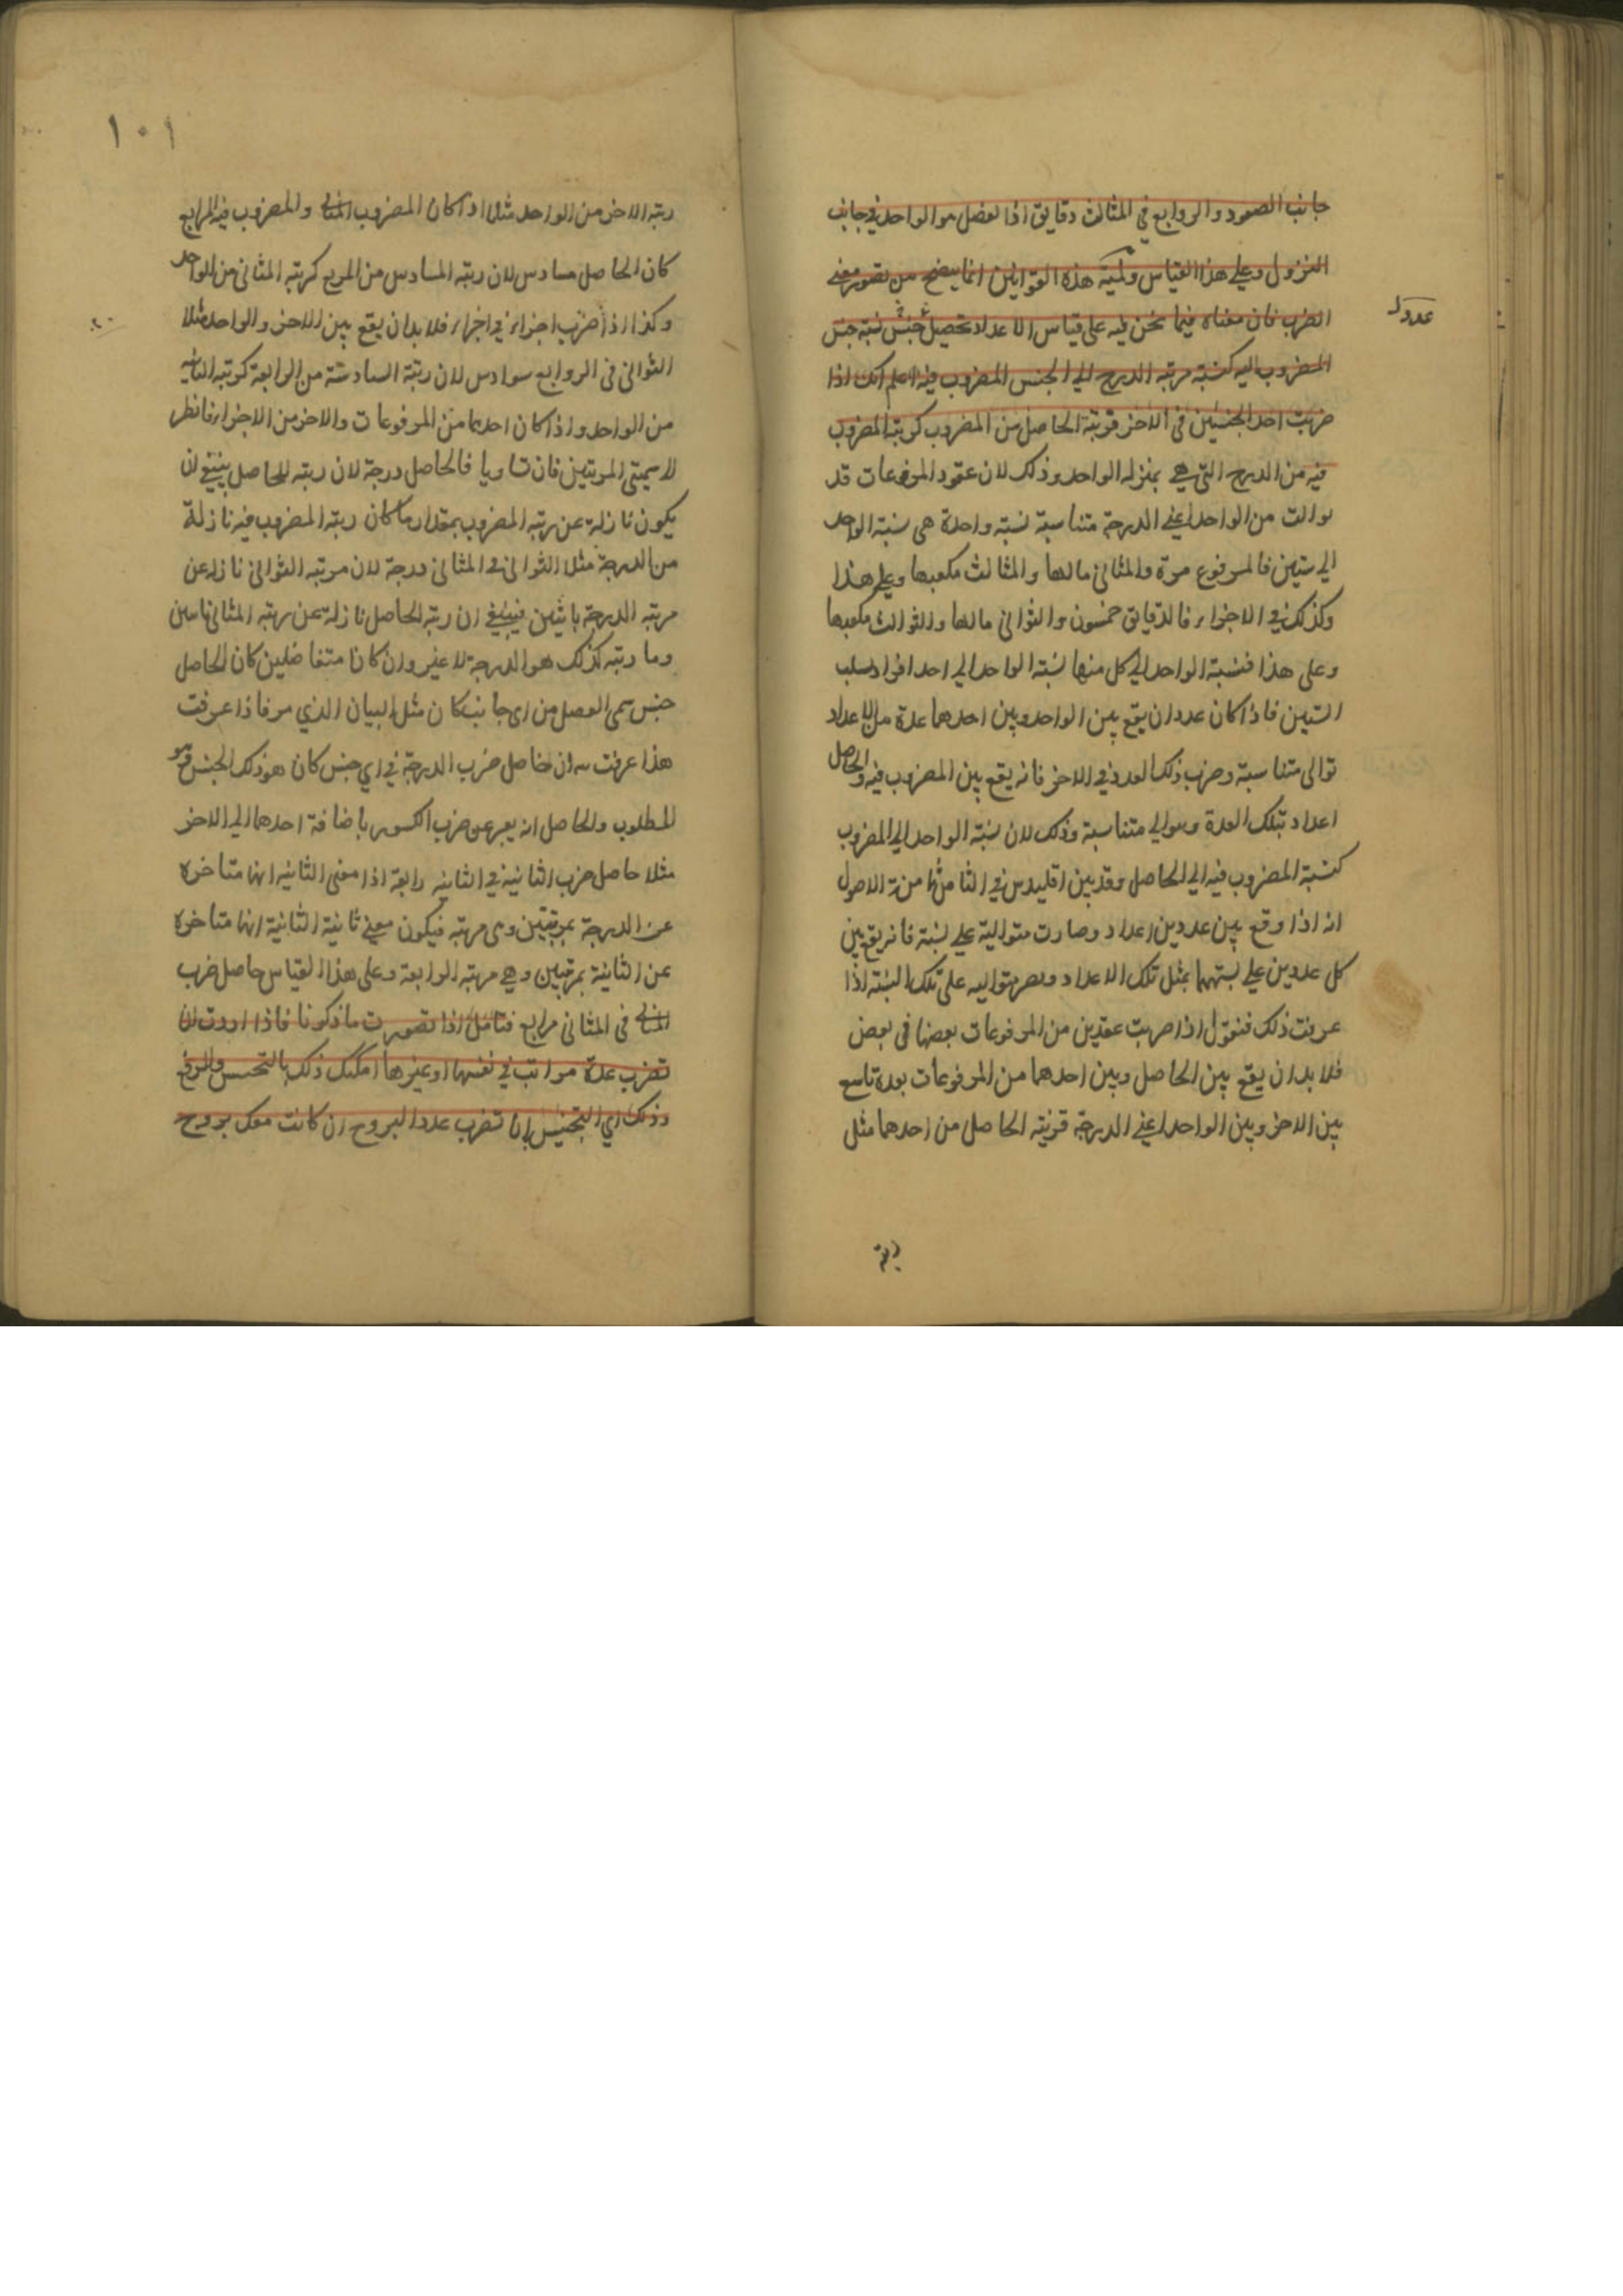 جانب الصعود والروابع في المثالث دقايق اذا لفضل هو الواحد في جانب
النزول وعلى هذا القياس ولمية هذه القوانين انما يتضح من تصور معنى
الضرب فان معناه فيما نحن فيه على قياس الاعداد تحصيل جنس نسبة جنس
عدول
المضروب اليه كنسبة مرتبه الدرج الي الجنس المضروب فيه اعلم انك اذا
ضربت احد الجنسين في الاخر فرتبة الحاصل من المضروب كرتبة المضروب
فيه من الدرج التي هي بمنزله الواحد وذلك لان عقود المرفوعات قد
توالت من الواحد اعني الدرجة متناسبة نسبة واحدة هي نسبة الواحد
الي ستين فالمرفوع مرة والمثاني مالها والمثالث مكعبها وعلي هذا
وكذلك في الاجزاء فالدقايق خمسون والثواني مالها والثوالث مكعبها
وعلى هذا فنسبة الواحد الي كل منها نسبة الواحد الي احد افراد سلب
الستين فاذا كان عددان يقع بين الواحد وبين احدهما عدة من الاعداد
توالى متناسبة وضرب ذلك العدد في الاخر فانه يقع بين المضروب فيه والحاصل
اعداد بتلك العدة وتوالي متناسبة وذلك لان نسبة الواحد الي المضروب
كنسبة المضروب فيه الي الحاصل وقد بين اقليدس في الثامنة من الاصول
انه اذا وقع بين عددين اعداد وصارت متوالية علي نسبة فانه يقع بين
كل عددين علي نسبتهما بمثل تلك الاعداد وتصير متواليه على تلك النسبة اذا
عرفت ذلك فنقول اذا ضربت عقدين من المرفوعات بعضها في بعض
فلا بد ان يقع بين الحاصل وبين احدهما من المرفوعات بعدة تاسع
بين الاخر وبين الواحد اعني الدرجة فرتبة الحاصل من احدهما مثل
رتبة
١٠١
رتبة الاخر من الواحد مثلا اذا كان المضروب المثاني والمضروب فيه المرابع
كان الحاصل مسادس لان رتبة المسادس من المربع كرتبة المثاني من الواحد
وكذا اذا ضرب اجزاء في اجزاء فلا بد ان يقع بين الاخر والواحد مثلا
الثواني في الروابع سوادس لان رتبة السادسة من الرابعة كرتبة الثانية
من الواحد واذا كان احدهما من المرفوعات والاخر من الاجزاء فانظر
لاسميتي المرتبتين فان تساويا فالحاصل درجة لان رتبة الحاصل ينبغي ان
يكون نازلة عن رتبة المضروب بمقدار ما كان رتبة المضروب فيه نازلة
من الدرجة مثلا الثواني في المثاني درجة لان مرتبه الثواني نازله عن
مرتبه الدرجة باثنين فينبغي ان رتبة الحاصل نازلة عن رتبة المثاني باثنين
وما رتبه كذلك هو الدرجة لا غير وان كانا متفاضلين كان الحاصل
جنس سمى الفضل من اي جانب كان مثل البيان الذي مر فاذا عرفت
هذا عرفت ان حاصل ضرب الدرجة في اي جنس كان هو ذلك الجنس فهو
المطلوب والحاصل انه يعبر عن ضرب الكسور باضافة احدهما الي الاخر
مثلا حاصل ضرب الثانية في الثانيه رابعة اذا معنى الثانيه انها متاخره
عن الدرجة بمرتبتين وى مرتبه فيكون معنى ثانية الثانية انها متاخرة
عن الثانية بمرتبتين وهي مرتبة الرابعة وعلى هذا القياس حاصل ضرب
المثاني في المثاني مرابع فتامل اذا تصورت ما ذكرنا فاذا اردت ان
تضرب عدة مراتب في نفسها او غيرها امكنك ذلك بالتجنيس والرفع
وذلك اي التجنيس بان تضرب عدد البروج ان كانت معك بروج